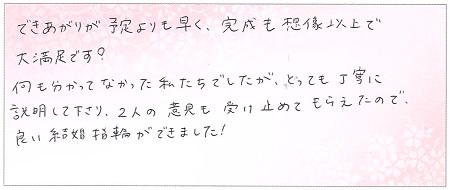 できあがりが予定よりも早く、完成も想像以上で
大満足です?
何も分かってなかった私たちでしたが、とっても丁寧に
説明して下さり、2人の意見も受け止めてもらえたので、
良い結婚指輪ができました!